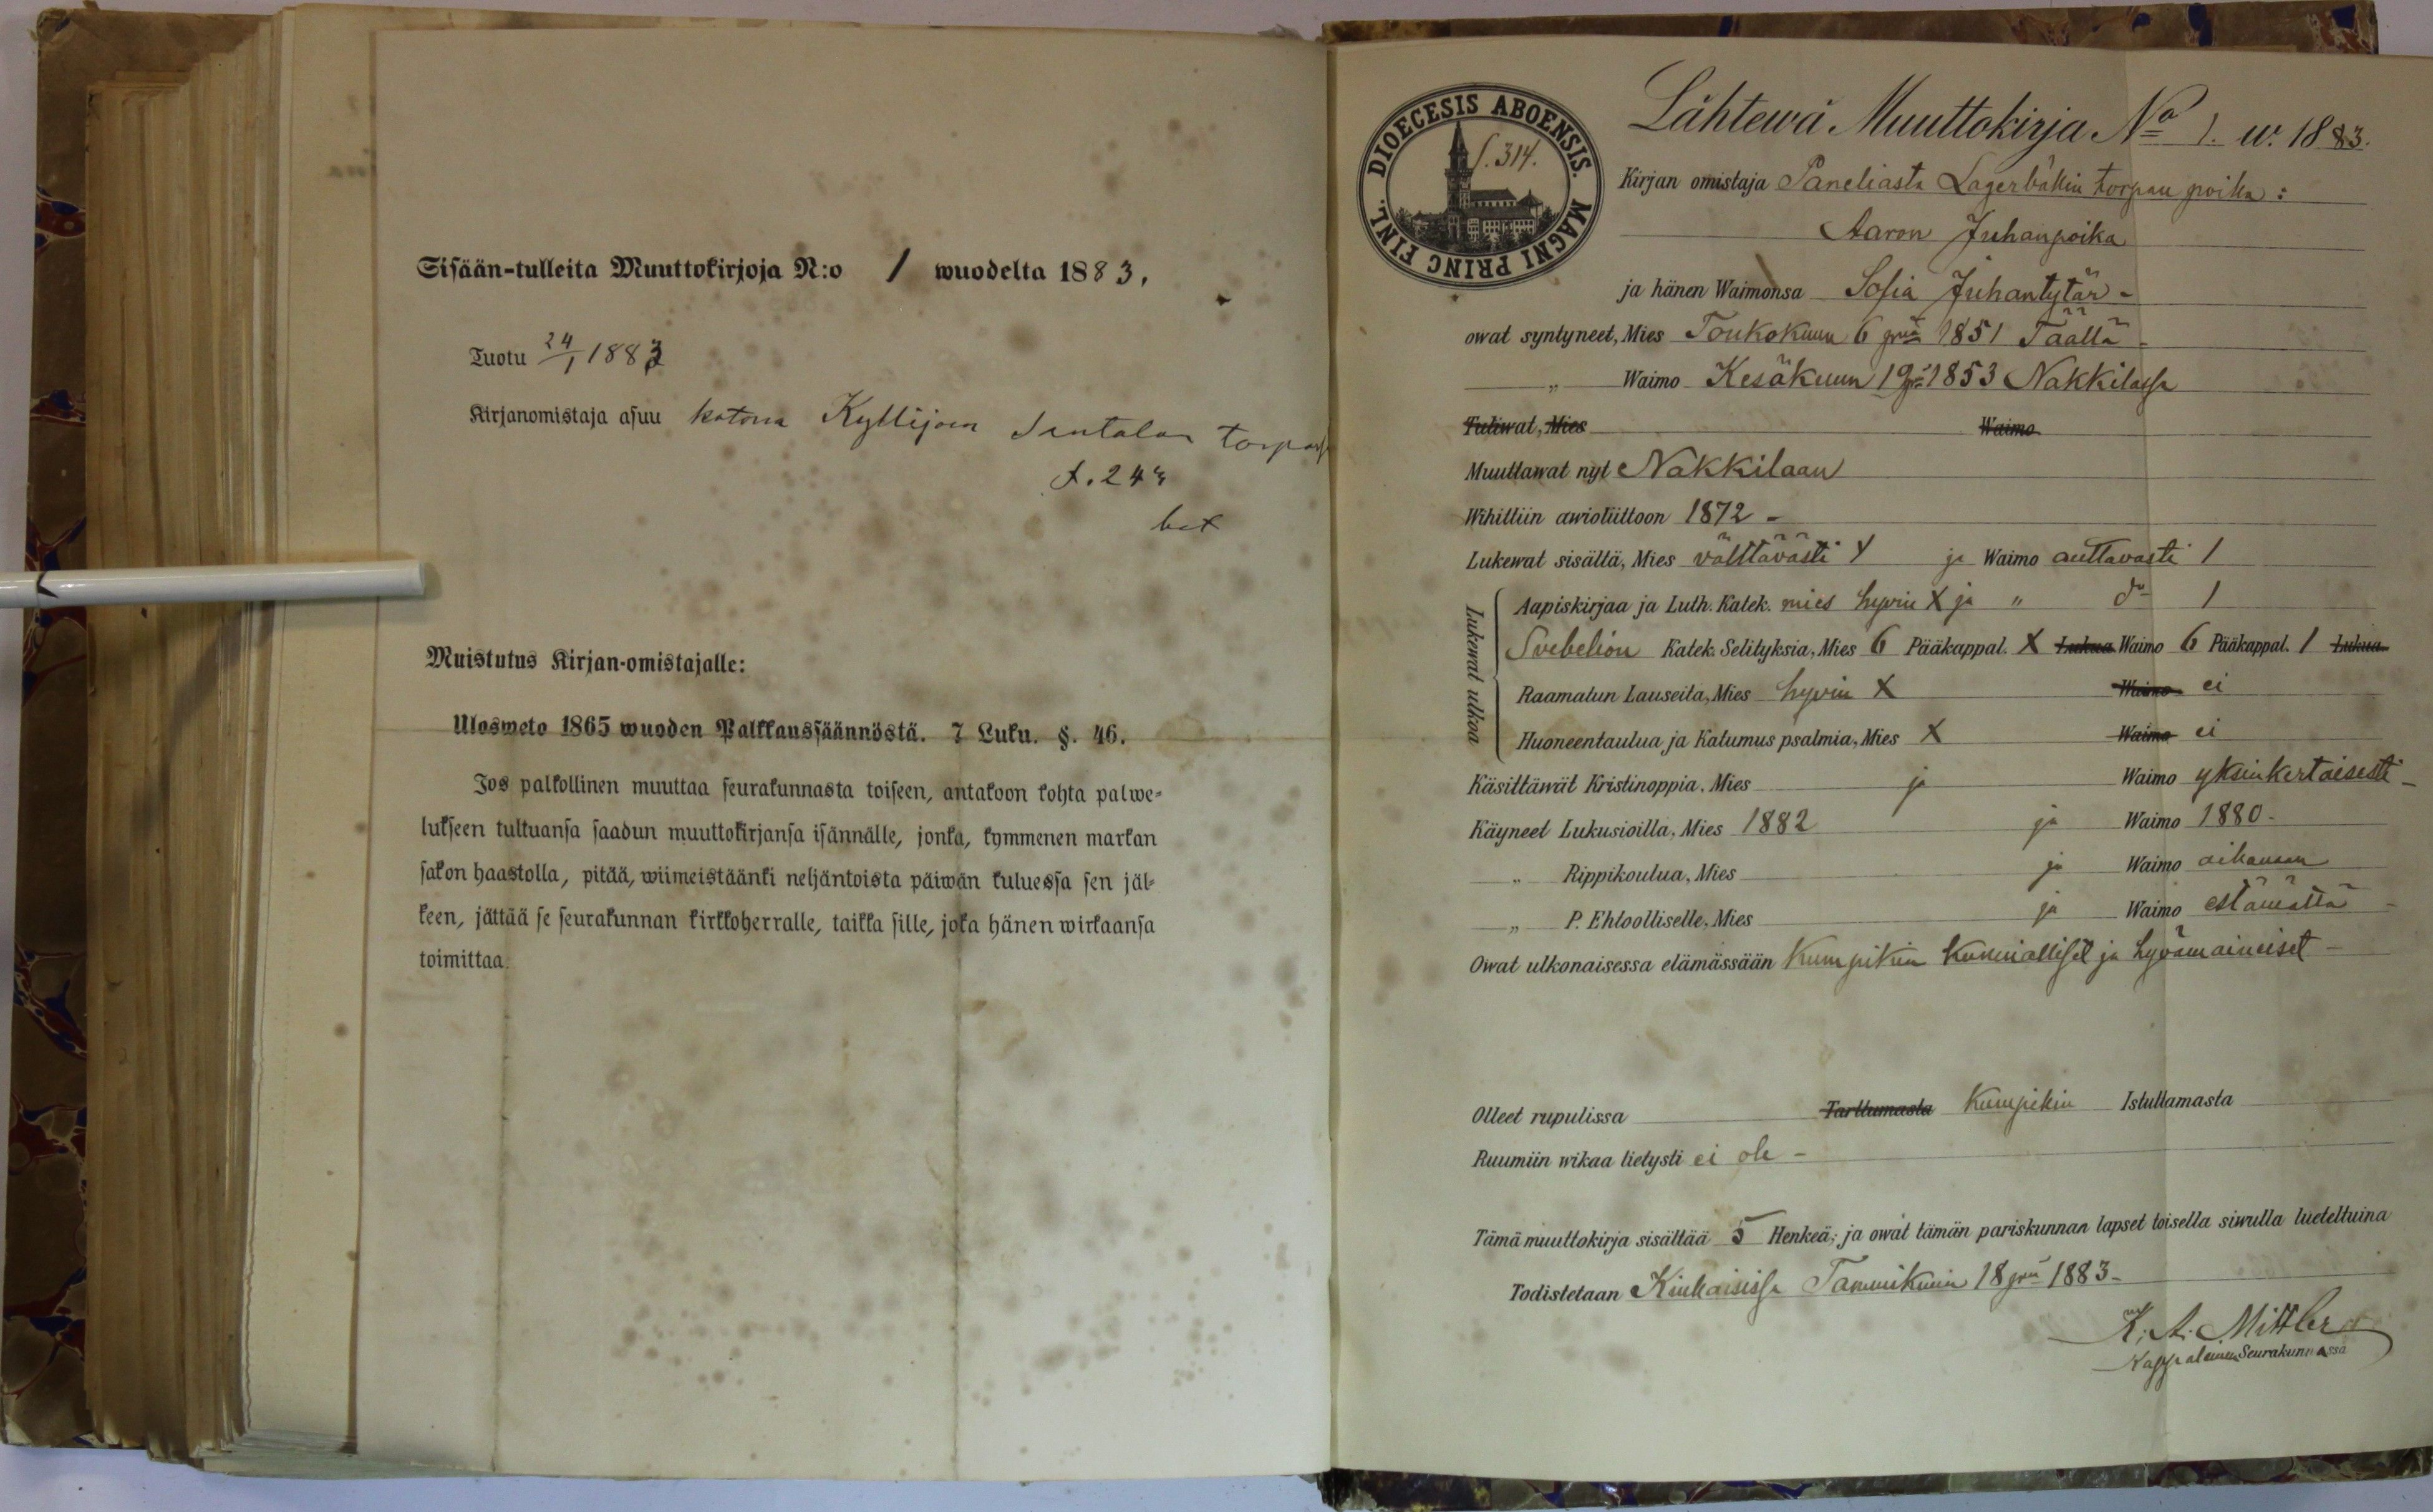 Sisään-tulleita Muuttokirjoja N:o 1 wuodelta 1883.
Tuotu 24/1 1883
Kirjanomistaja asuu kotona Kyllijoen Santalan torpassa
S. 244
Muistutus Kirjan-omistajalle:
Ulosweto 1865 wuoden Palkkaussäännöstä. 7 Luku. §. 46.
Jos palkollinen muuttaa seurakunnasta toiseen, antakoon kohta palwe-
lukseen tultuansa saadun muuttokirjansa isännälle, jonka, kymmenen markan
sakon haastolla, pitää, wiimeistäänki neljäntoista päiwän kuluessa sen jäl-
keen, jättää se seurakunnan kirkkoherralle, taikka sille, joka hänen wirkaansa
toimittaa.
DIOECESIS ABOENSIS. MAGNI PRINC FINL.
S. 314.
Lähtewä Muuttokirja No 1. w. 1883.
Kirjan omistaja Paneliasta Lagerbäkin torpan poika:
Aaron Juhanpoika
ja hänen Waimonsa Sofia Juhantytär -
owat syntyneet, Mies Toukokuun 6 pnä 1851 Täällä -
„ Waimo Kesäkuun 19 pä 1853 Nakkilassa
Tuliwat, Mies Waimo
Muuttawat nyt Nakkilaan
Wihittiin awioliittoon 1872 -
Lukewat sisältä, Mies välttävästi Y ja Waimo auttavasti 1
Lukewat ulkoa
Aapiskirjaa ja Luth. Katek. mies hyvin X ja „ do 1
Svebelion Katek. Selityksia, Mies 6 Pääkappal. X Lukua Waimo 6 Pääkappal. 1 Lukua
Raamatun Lauseita, Mies hyvin X Waimo ei
Huoneentaulua ja Katumus psalmia, Mies X Waimo ei
Käsittäwät Kristinoppia, Mies ja Waimo yksinkertaisesti -
Käyneet Lukusioilla, Mies 1882 ja Waimo 1880 -
„ Rippikoulua, Mies ja Waimo aikanaan
„ P. Ehtoolliselle, Mies ja Waimo estämättä -
Owat ulkonaisessa elämässään Kumpikin kunnialliset ja hyvämaineiset -
Olleet rupulissa Tarttumasta Kumpikin Istuttamasta
Ruumiin wikaa tietysti ei ole -
Tämä muuttokirja sisältää 5 Henkeä; ja owat tämän pariskunnan lapset toisella siwulla lueteltuina
Todistetaan Kiukaisissa Tammikuun 18 pnä 1883 -
K. A. Mittler
Kappalainen Seurakunnassa